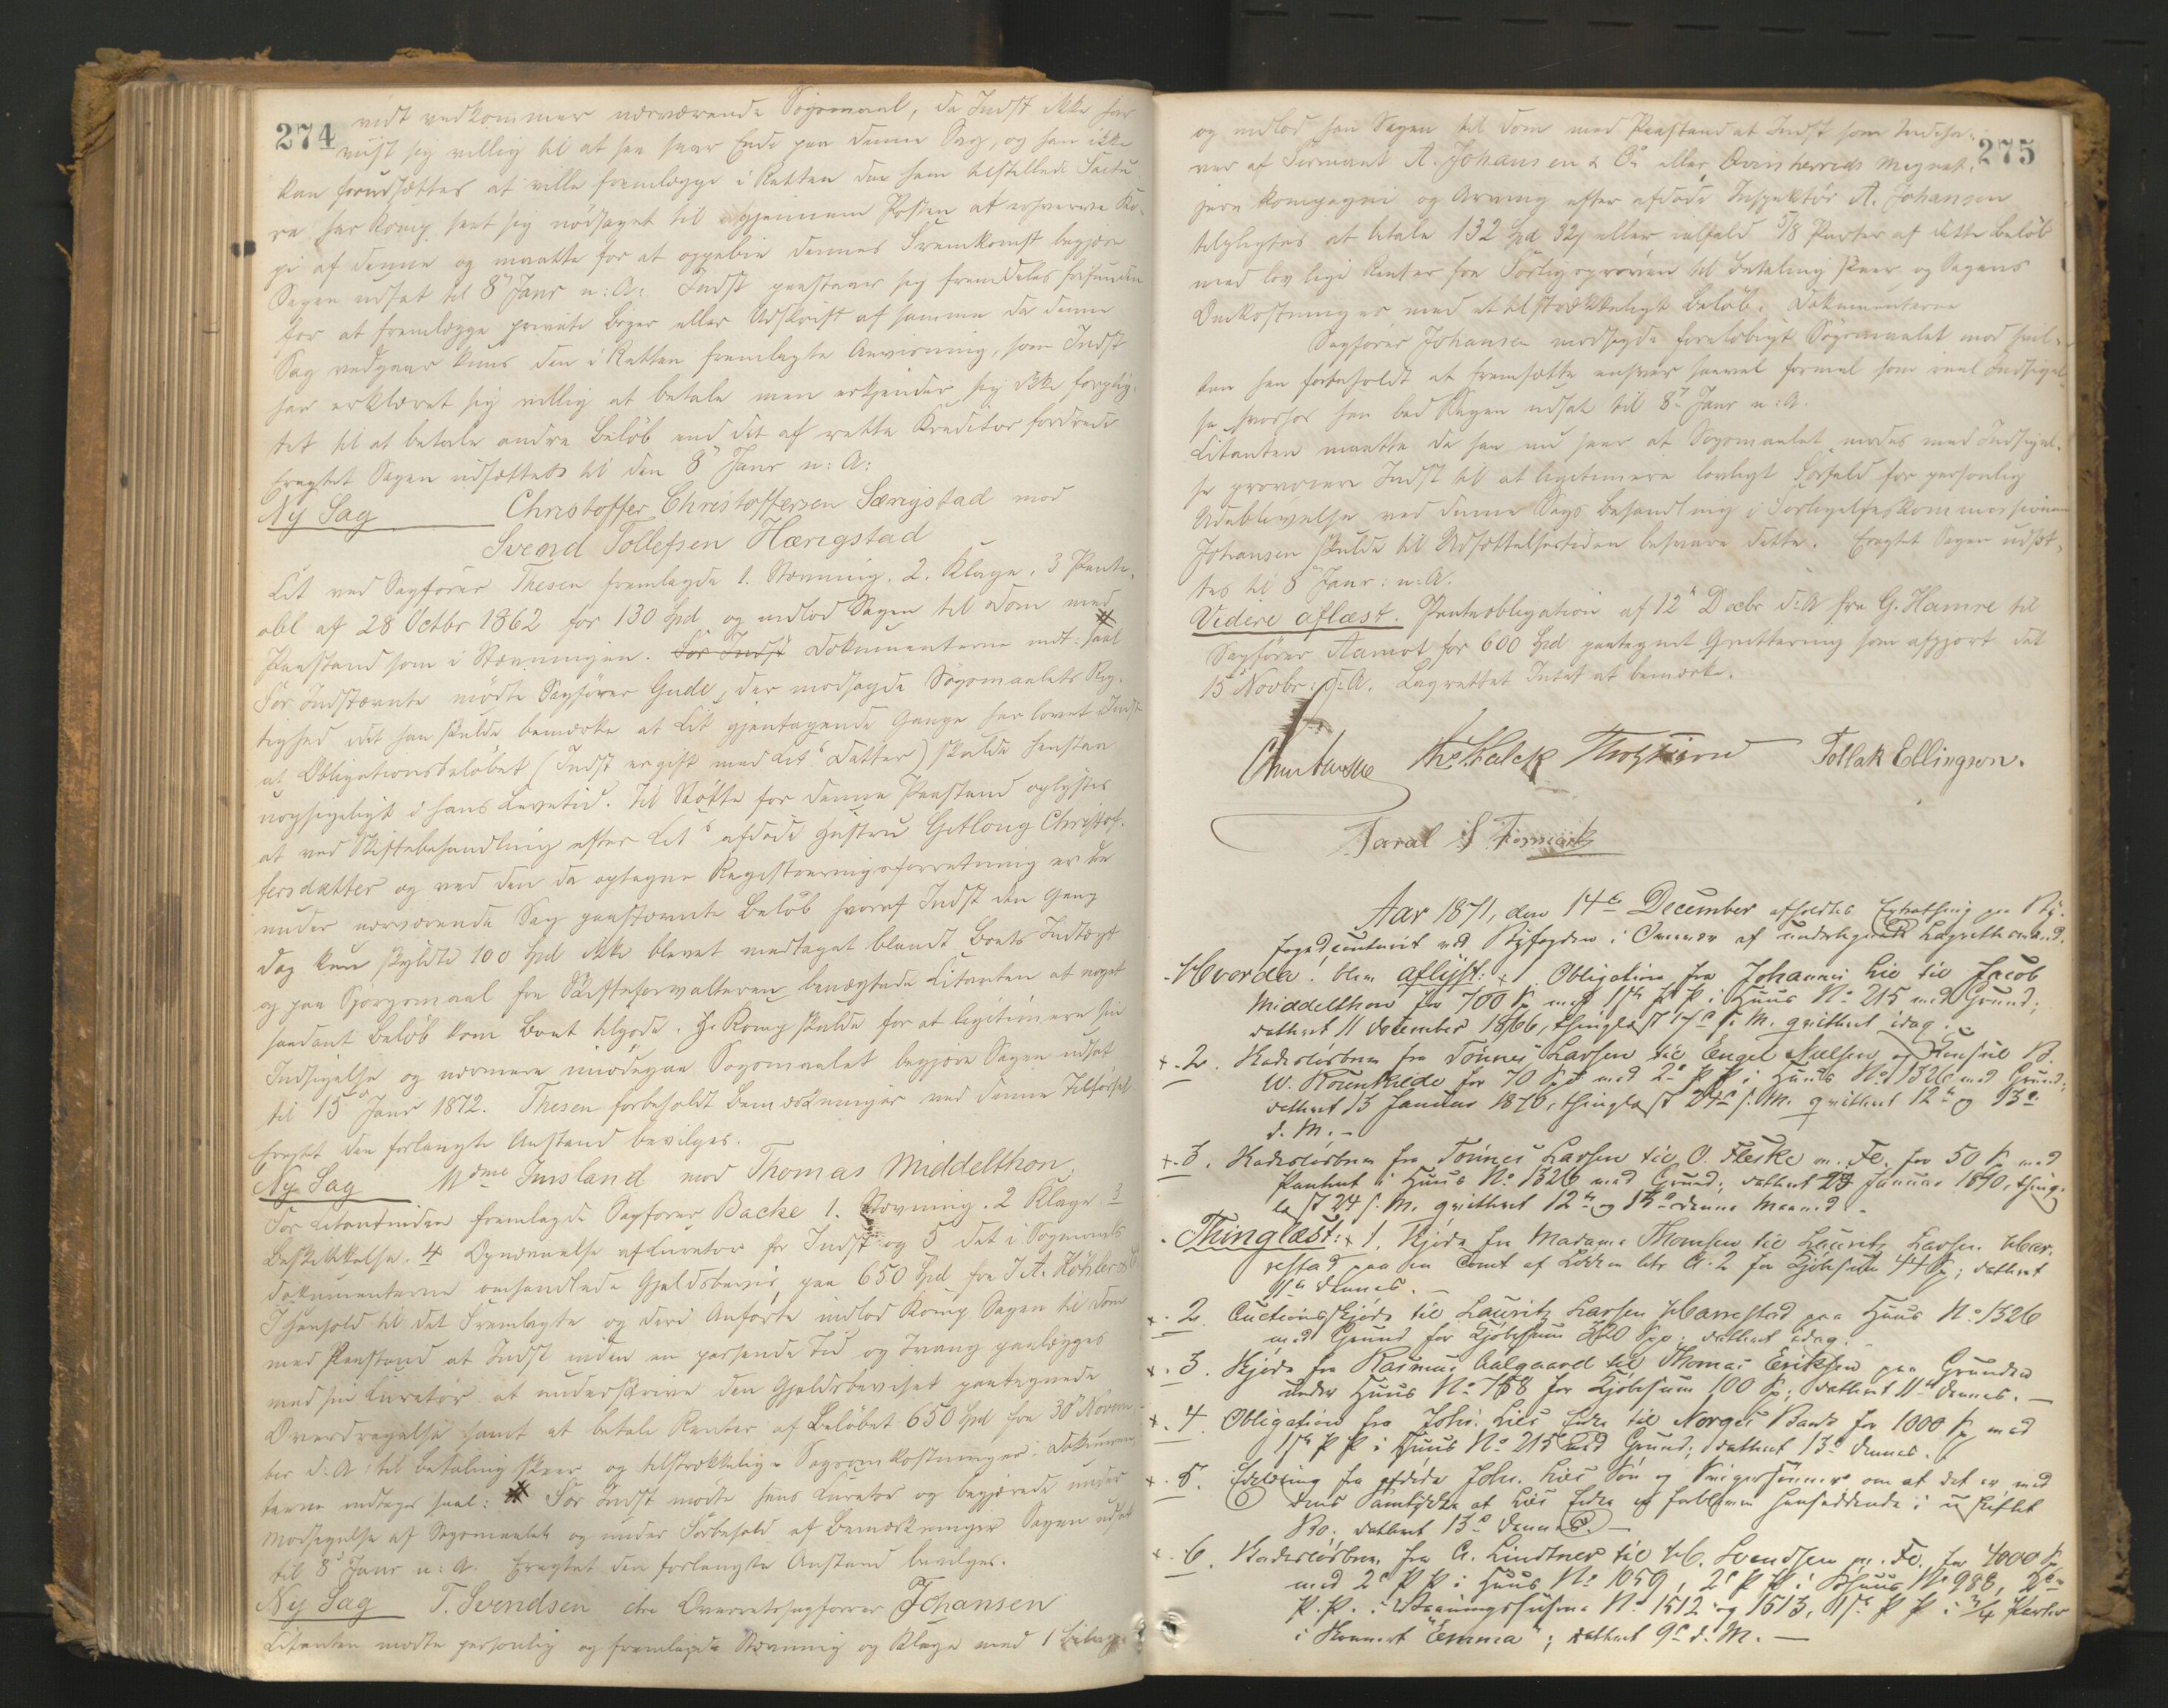 274
vidt vedkommer nærværende Søgsmaal, da Indst ikke har
viist sig villig til at faa snar Ende paa denne Sag, og han ikke
kan forudsættes at ville fremlægge i Retten den ham tilstillede Factu-
ra har Komp. seet sig nødsaget til gjennem Posten at erhverve Ko-
pi af denne og maatte for at oppebie dennes Fremkomst begjære
Sagen udsat til 8de Janr n: A: Indst paastaaer sig fremdeles
for at fremlægge private Bøger eller Udskrift af samme da denne
Sag vedgaar kuns den i Retten fremlagte Anvisning, som Indst
har erklæret sig villig at betale men erkjender sig ikke forplig-
tet til at betale andre Beløb end det af rette Kreditor fordrede
Eragtet Sagen udsættes til den 8de Janr n: A:
Ny Sag Christoffer Christoffersen Særigstad mod
Svend Tollefsen Hærigstad
Cit ved Sagfører Thesen fremlagde 1. Stævning. 2. Klage. 3 Pante-
obl af 28 Octbr 1862 for 130 Spd og indlod Sagen til Dom med
Paastand som i Stævningen. For Indst Dokumenterne indt: saal
For Indstævnte mødte Sagfører Gude, der modsagde Søgsmaalets Rig-
tighed idet han skulde bemærke at Cit gjentagende Gange har lovet Indst
at Obligationsbeløbet (Indst er gift med Cits Datter) skulde henstaa
uopsigeligt i hans Levetid. Til Støtte for denne Paastand oplystes
at ved Skiftebehandling efter Cits afdøde Hustru Gitlong Christof-
fersdatter og ved den da optagne Registreringsforretning er det
under nærværende Sag paastævnte Beløb hvoraf Indst den Gang
dog kun skyldte 100 Spd ikke blevet medtaget blandt Boets Indtægt
og paa Spørgsmaal fra Skifteforvalteren benægtede Citanten at noget
saadant Beløb kom Boet tilgode. Komp skulde for at legitimere sin
Indsigelse og nærmere imødegaa Søgsmaalet begjære Sagen udsat
til 15de Janr 1872. Thesen forbeholdt Bemærkninger ved denne Tilførsel
Eragtet den forlangte Anstand bevilges.
Ny Sag Mdme Imsland mod Thomas Middelthon
For Citantinden fremlagde Sagfører Backe 1. Stævning. 2 Klage 3
Beskikkelse. 4 Opnævnelse af Curator for Indst og 5 det i Søgsmaals
dokumenterne omhandlede Gjældsbevis, paa 650 Spd fra J A. Köhler
I Henhold til det Fremlagte og deri Anførte indlod Komp Sagen til Dom
med Paastand at Indst inden en passende Tid og Tvang paalægges
med sin Curator at underskrive den Gjældsbeviset paategnede
Overdragelse samt at betale Renter af Beløbet 650 Spd fra 30 Novem-
ber d. A: til Betaling skeer og tilstrækkelige Sagsomkostninger. Dokumen-
terne indtages saal: For Indst mødte hans Curator og begjærede under
Modsigelse af Søgsmaalet og under Forbehold af Bemærkninger Sagen udsat
til 8de Janr n: A. Eragtet den forlangte Anstand bevilges.
Ny Sag T. Svendsen ctra Overretssagfører Johansen
Citanten mødte personlig og fremlagde Stævning og Klage med 1 Bilag
275
og indlod han Sagen til Dom med Paastand at Indst som Indeha-
ver af Firmaet A. Johansen & Co eller Qvinsherreds
jern kompagni og Arving efter afdøde Inspektør A. Johansen
tilpligtes at betale 132 Spd 32 eller ialfald 5/8 Parter af dette Beløb
med lovlige Renter fra Forligsprøven til Betaling skeer og Sagens
Omkostninger med et tilstrækkeligt Beløb. Dokumenterne
Sagfører Johansen modsagde foreløbigt Søgsmaalet mod hvil-
ket han forbeholdt at fremsætte enhver saavel formel som reel Indsigel-
se hvorfor han bad Sagen udsat til 8de Janr n: A.
Citanten maatte da han nu hører at Søgsmaalet mødes med Indsigel-
se provocere Indst til at legitimere lovligt Forfald for personlig
Udeblivelse ved denne Sags Behandling i Forligelseskommissionen
Johansen skulde til Udsættelsestiden besvare dette. Eragtet Sagen udsæt-
tes til 8 Janr: n. A.
Videre aflæst. Panteobligation af 12te Decbr d. A fra G. Hamre til
Sagfører Aamot for 600 Spd paategnet Qvittering som afgjort dat
15 Novbr: d. A. Lagrettet Intet at bemærke.
Tollak Ellingson.
Taral
Aar 1871, den 14de December afholdtes Extrathing paa By-
fogedcontoiret ved Byfogden i af undertegnede Lagrettemænd.
Hvorda blev aflyst: 1. Obligation fra Johannes Lie til Jacob
Middelthon for 700 Sp med 1ste P P i Huus No 215 med Grund;
datteret 11 December 1866, thinglæst 17de s. M. qvitteret idag.
2. Kadesløsbrev fra Tönnes Larsen til Engel Nielsen og Konsul B.
W. Rosenkilde for 70 Spd med 2 P P i Huus No 1326 med Grund;
datteret 13 Januar 1870, thinglæst 24de s. M. qvitteret 12te og 13de
d. M. -
3. Kadesløsbrev fra Tönnes Larsen til O. Fleske m. Fl. for 50 Sp med
Panteret i Huus No 1326 med Grund; datteret Januar 1870, thing-
læst 24 s. M. qvitteret 12te og 13de denne Maaned -
Thinglæst: 1. Skjøde fra Madame Thomsen til Lauritz Larsen Har-
restad paa en Tomt af Lökken litr A. 2 for Kjöbesum 44 Sp; datteret
11te dennes. -
2. Auctionsskjöde til Lauritz Larsen Harrestad paa Huus No 1326
med Grund for Kjöbesum 320 Spd; datteret idag.
3. Skjöde fra Rasmus Aalgaard til Thomas Eriksen paa Grunden
under Huus No 758 for Kjöbesum 100 Sp; datteret 11te dennes. -
4. Obligation fra Johs. Lies Enke til Norges Bank for 1000 Sp med
1ste P P i Huus No 215 med Grund; datteret 13de dennes.
5. Erklæring fra afdöde Johs. Lies Sön og Svigersönner om at det er med
deres Samtykke at Lies Enke er forbleven hensiddende i uskiftet
Bo; datteret 13de dennes. -
6. Kadesløsbrev fra A. Lindtner til H. Svendsen m. Fl. for 4000 Sp
med 2 P P i Huus No 1059, 2 P P i Söhuus No 988, 2den
P. P. i Vaaningshusene No 1512 og 1513, 1ste P P i 3/4 Parter
i Skonnert "Emma"; datteret 9de d. M. -